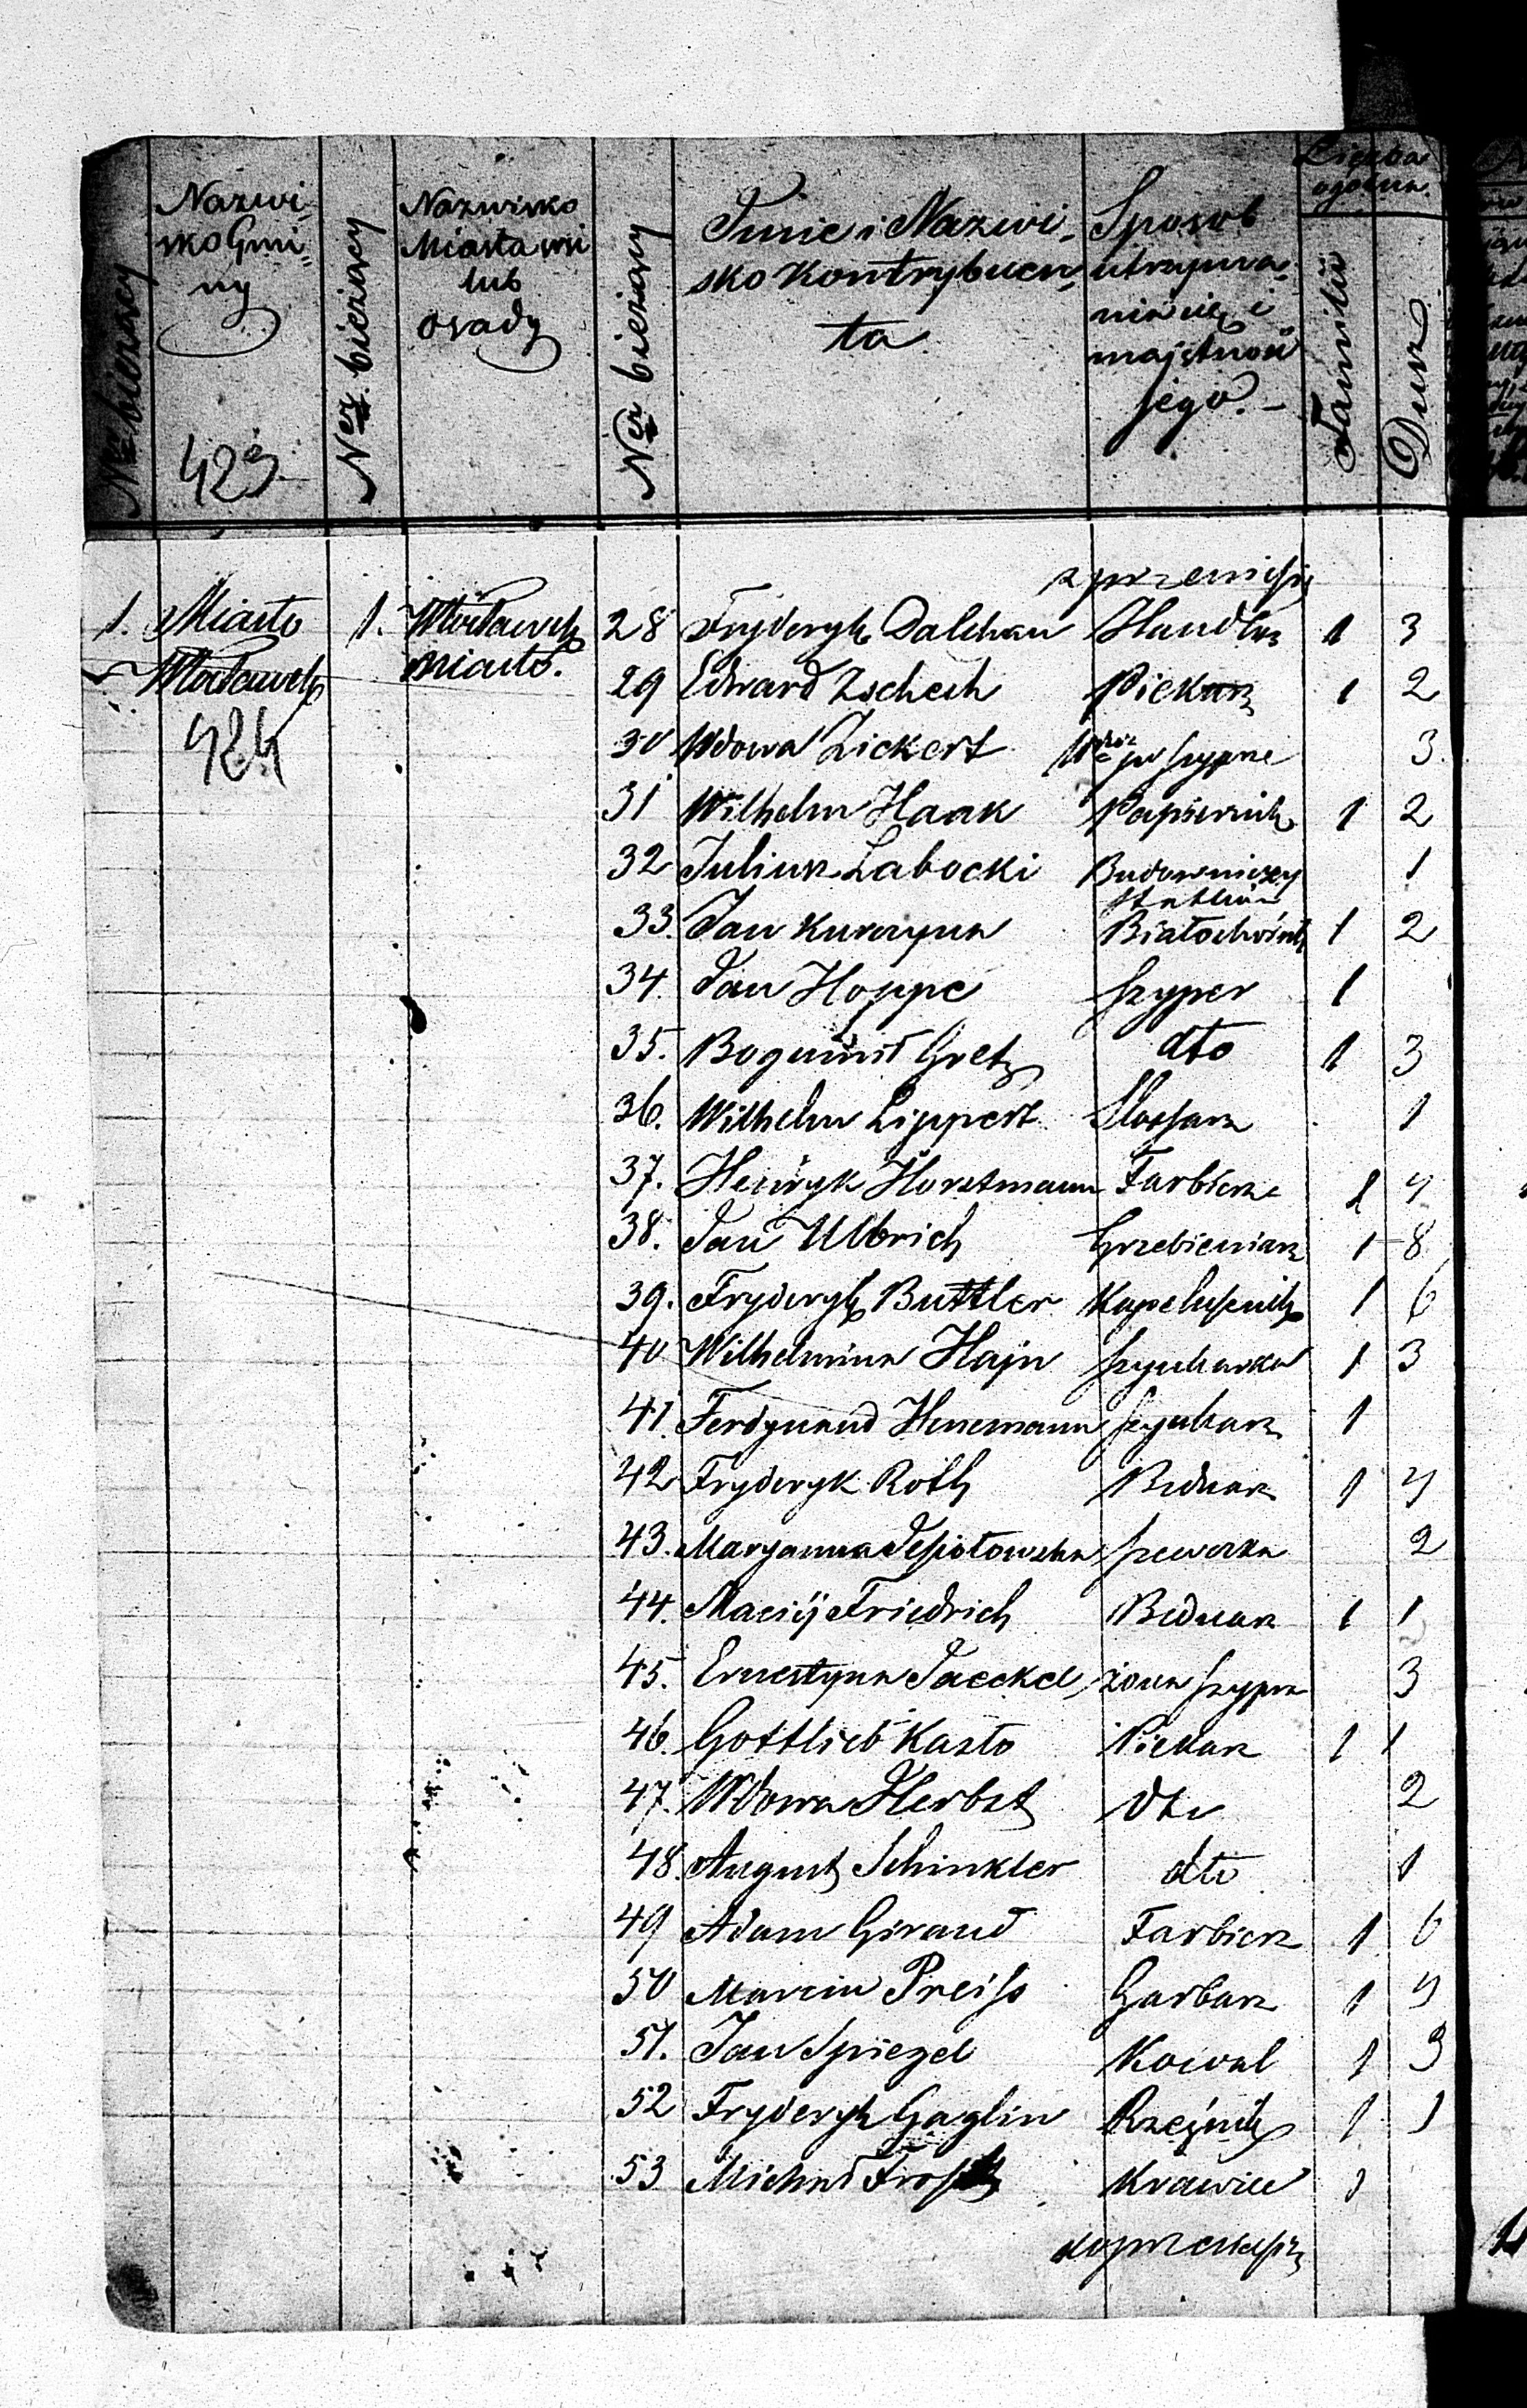 Ner bieżący
Nazwi-
sko Gmi-
ny
423
Ner bieżący
Nazwisko
Miasta wsi
lub
osady
Ner bieżący
Imie i Nazwi-
sko Kontrybuen-
ta
Sposob
utrzyma-
nia się i
majętność
jego.-
Liczba
ogólna
Familii
Dusz
z przeniesie
1. Miasto 1. Włocławek 28 Fryderyk Dalchau Handlarz 1 3
Włocławek miasto. 29 Edward Zschech Piekarz 1 2
424
30 Wdowa Zickert Wdowa po szyprze 3
31 Wilhelm Haak Papiernik 1 2
32 Juliusz Labocki Budowniczy 1
statków
33. Jan Białoskórnik 1 2
34. Jan Hoppe szyper 1
35. Bogumił Gretz dto 1 3
36. Wilhelm Lippert Slossarz 1
37. Henryk Horstmann Farbierz 1 4
38. Jan Ulbrich Grzebieniarz 1 8
39. Fryderyk Buttler Kapelusznik 1 6
40 Wilhelmina Hajn szynkarka 1 3
41. Ferdynand Henemann szynkarz 1
42 Fryderyk Roth Bednarz 1 4
43. Maryanna szwaczka 2
44. Maciej Friedrich Bednarz 1 1
45. Ernestyna Jaeckel, żona szypra 3
46. Gottlieb Kasto Piekarz 1 1
47. Wdowa Herbst dto 2
48. August Schinkler dto 1
49 Adam Giraud Farbierz 1 6
50 Marcin Preiss Garbarz 1 4
51. Jan Spiegel Kowal 1 3
52 Fryderyk Gaglin Rzeźnik 1 1
53 Michał Krawiec 1